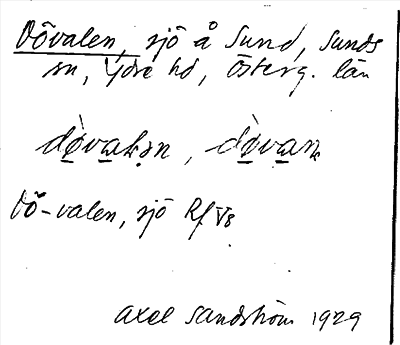 Dövalen, sjö å Sund, Sunds
sn, Ydre hd, Österg. län
dò̱va̱ḷən, dò̱va̱ṇ
Dö-valen, sjö Rf V8
Axel Sandström 1929